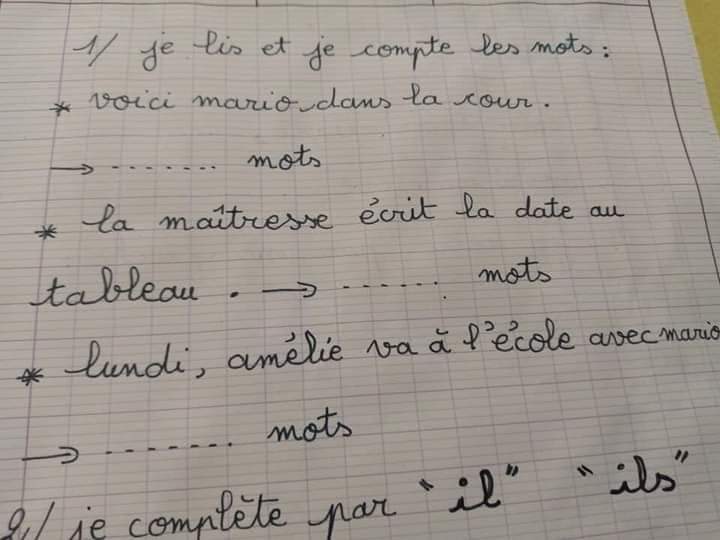 1/ je lis et je compte les mots :
* voici mario dans la cour .
→ ........ mots
* la maîtresse écrit la date au
tableau . → ....... mots
* lundi, amélie va à l'école avec mario
→ ........ mots
2/ je complète par " il " " ils "